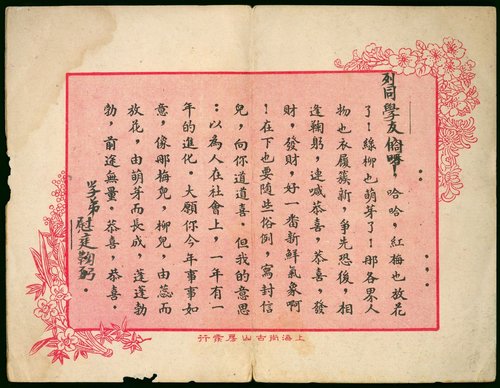 同學友 哈哈，紅梅也放花
了！綠柳也萌芽了！那各界人
物也衣履簇新，爭先恐後，相
逢鞠躬，連喊恭喜，恭喜，發
財，發財，好一番新鮮氣象啊
！在下也要隨些俗例，寫封信
兒，向你道道喜．但我的意思
：以為人在社會上，一年有一
年的進化．大願你今年事事如
意，像那梅兒，柳兒，由蕊而
放花，由萌芽而長成，蓬蓬勃
勃，前途無量．恭喜，恭喜．
學弟 慰廷鞠躬．
上海尚古山房發行